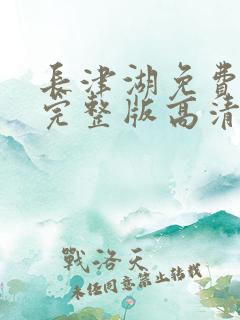 長津湖免費
完整版高清
戰洛天
未经同意禁止转载